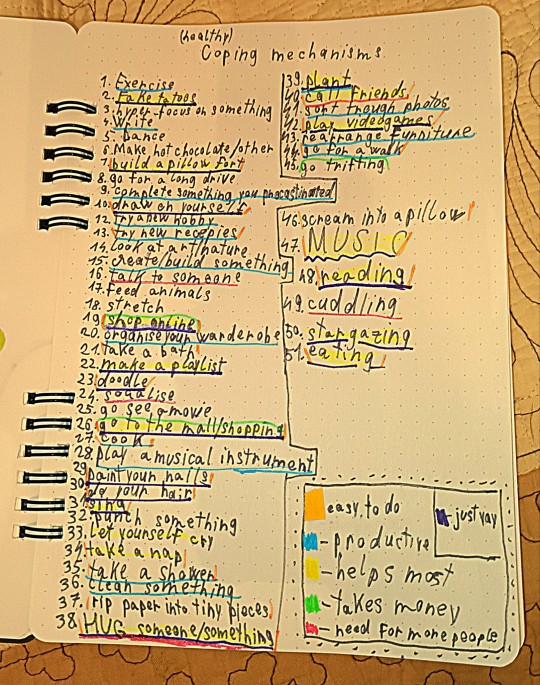 (healthy)
Coping mechanisms
1. Exercise
2. Fake tatoos
3. hyper-focus on something
4. Write
5. Dance
6. Make hot chocolate/other
7. build a pillow fort
8. go for a long drive
9. complete something you procastinated
10. draw on yourself
12. try new hobby
13. try new recepies
14. look at art/nature
15. create/build something
16. talk to someone
17. feed animals
18. stretch
19. shop online
20. organise your warderobe
21. take a bath
22. make a playlist
23. doodle
24. soualise
25. go see a movie
26. go to the mall/shopping
27. cook
28. play a musical instrument
29. paint your nails
30. do your hair
31. sing
32. punch something
33. let yourself cry
34. take a nap
35. take a shower
36. clean something
37. rip paper into tiny pieces
38. HUG someone/something
39. plant
40. call friends
41. sort trough photos
42. play videogames
43. rearrange furniture
44. go for a walk
45. go trifting
46. scream into a pillow
47. MUSIC
48. reading
49. cuddling
50. stargazing
51. eating
easy to do
- just yay
- productive
- helps most
- takes money
- need for more people